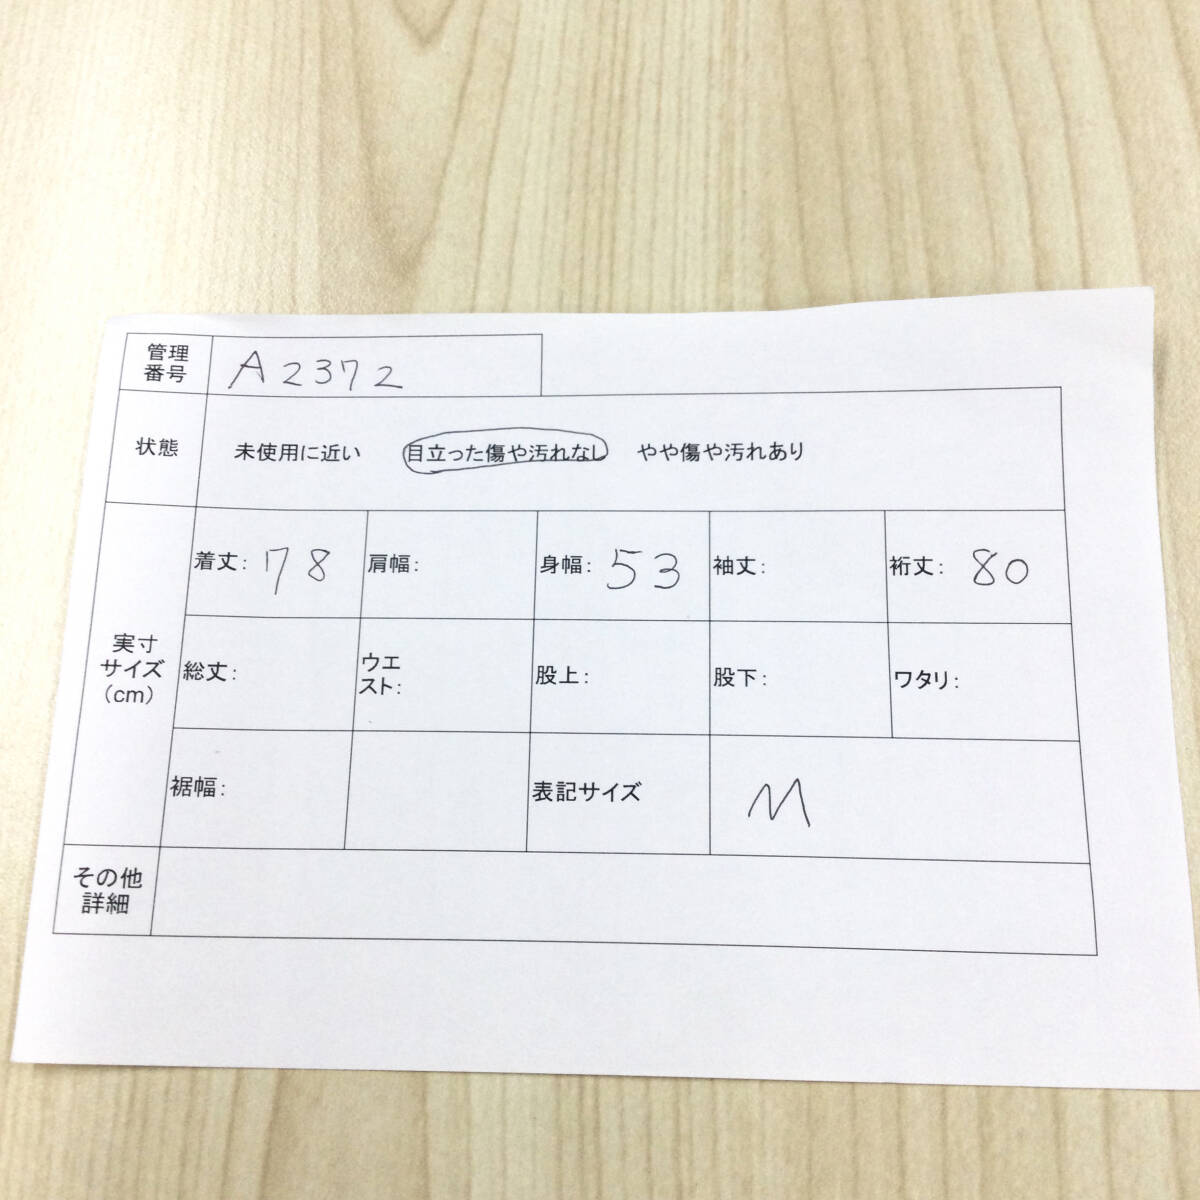 管理
番号
A2372
状態
未使用に近い 目立った傷や汚れなし やや傷や汚れあり
実寸
サイズ
(cm)
着丈: 78 肩幅: 身幅: 53 袖丈: 裄丈: 80
総丈: ウエ
スト: 股上: 股下: ワタリ:
裾幅: 表記サイズ M
その他
詳細